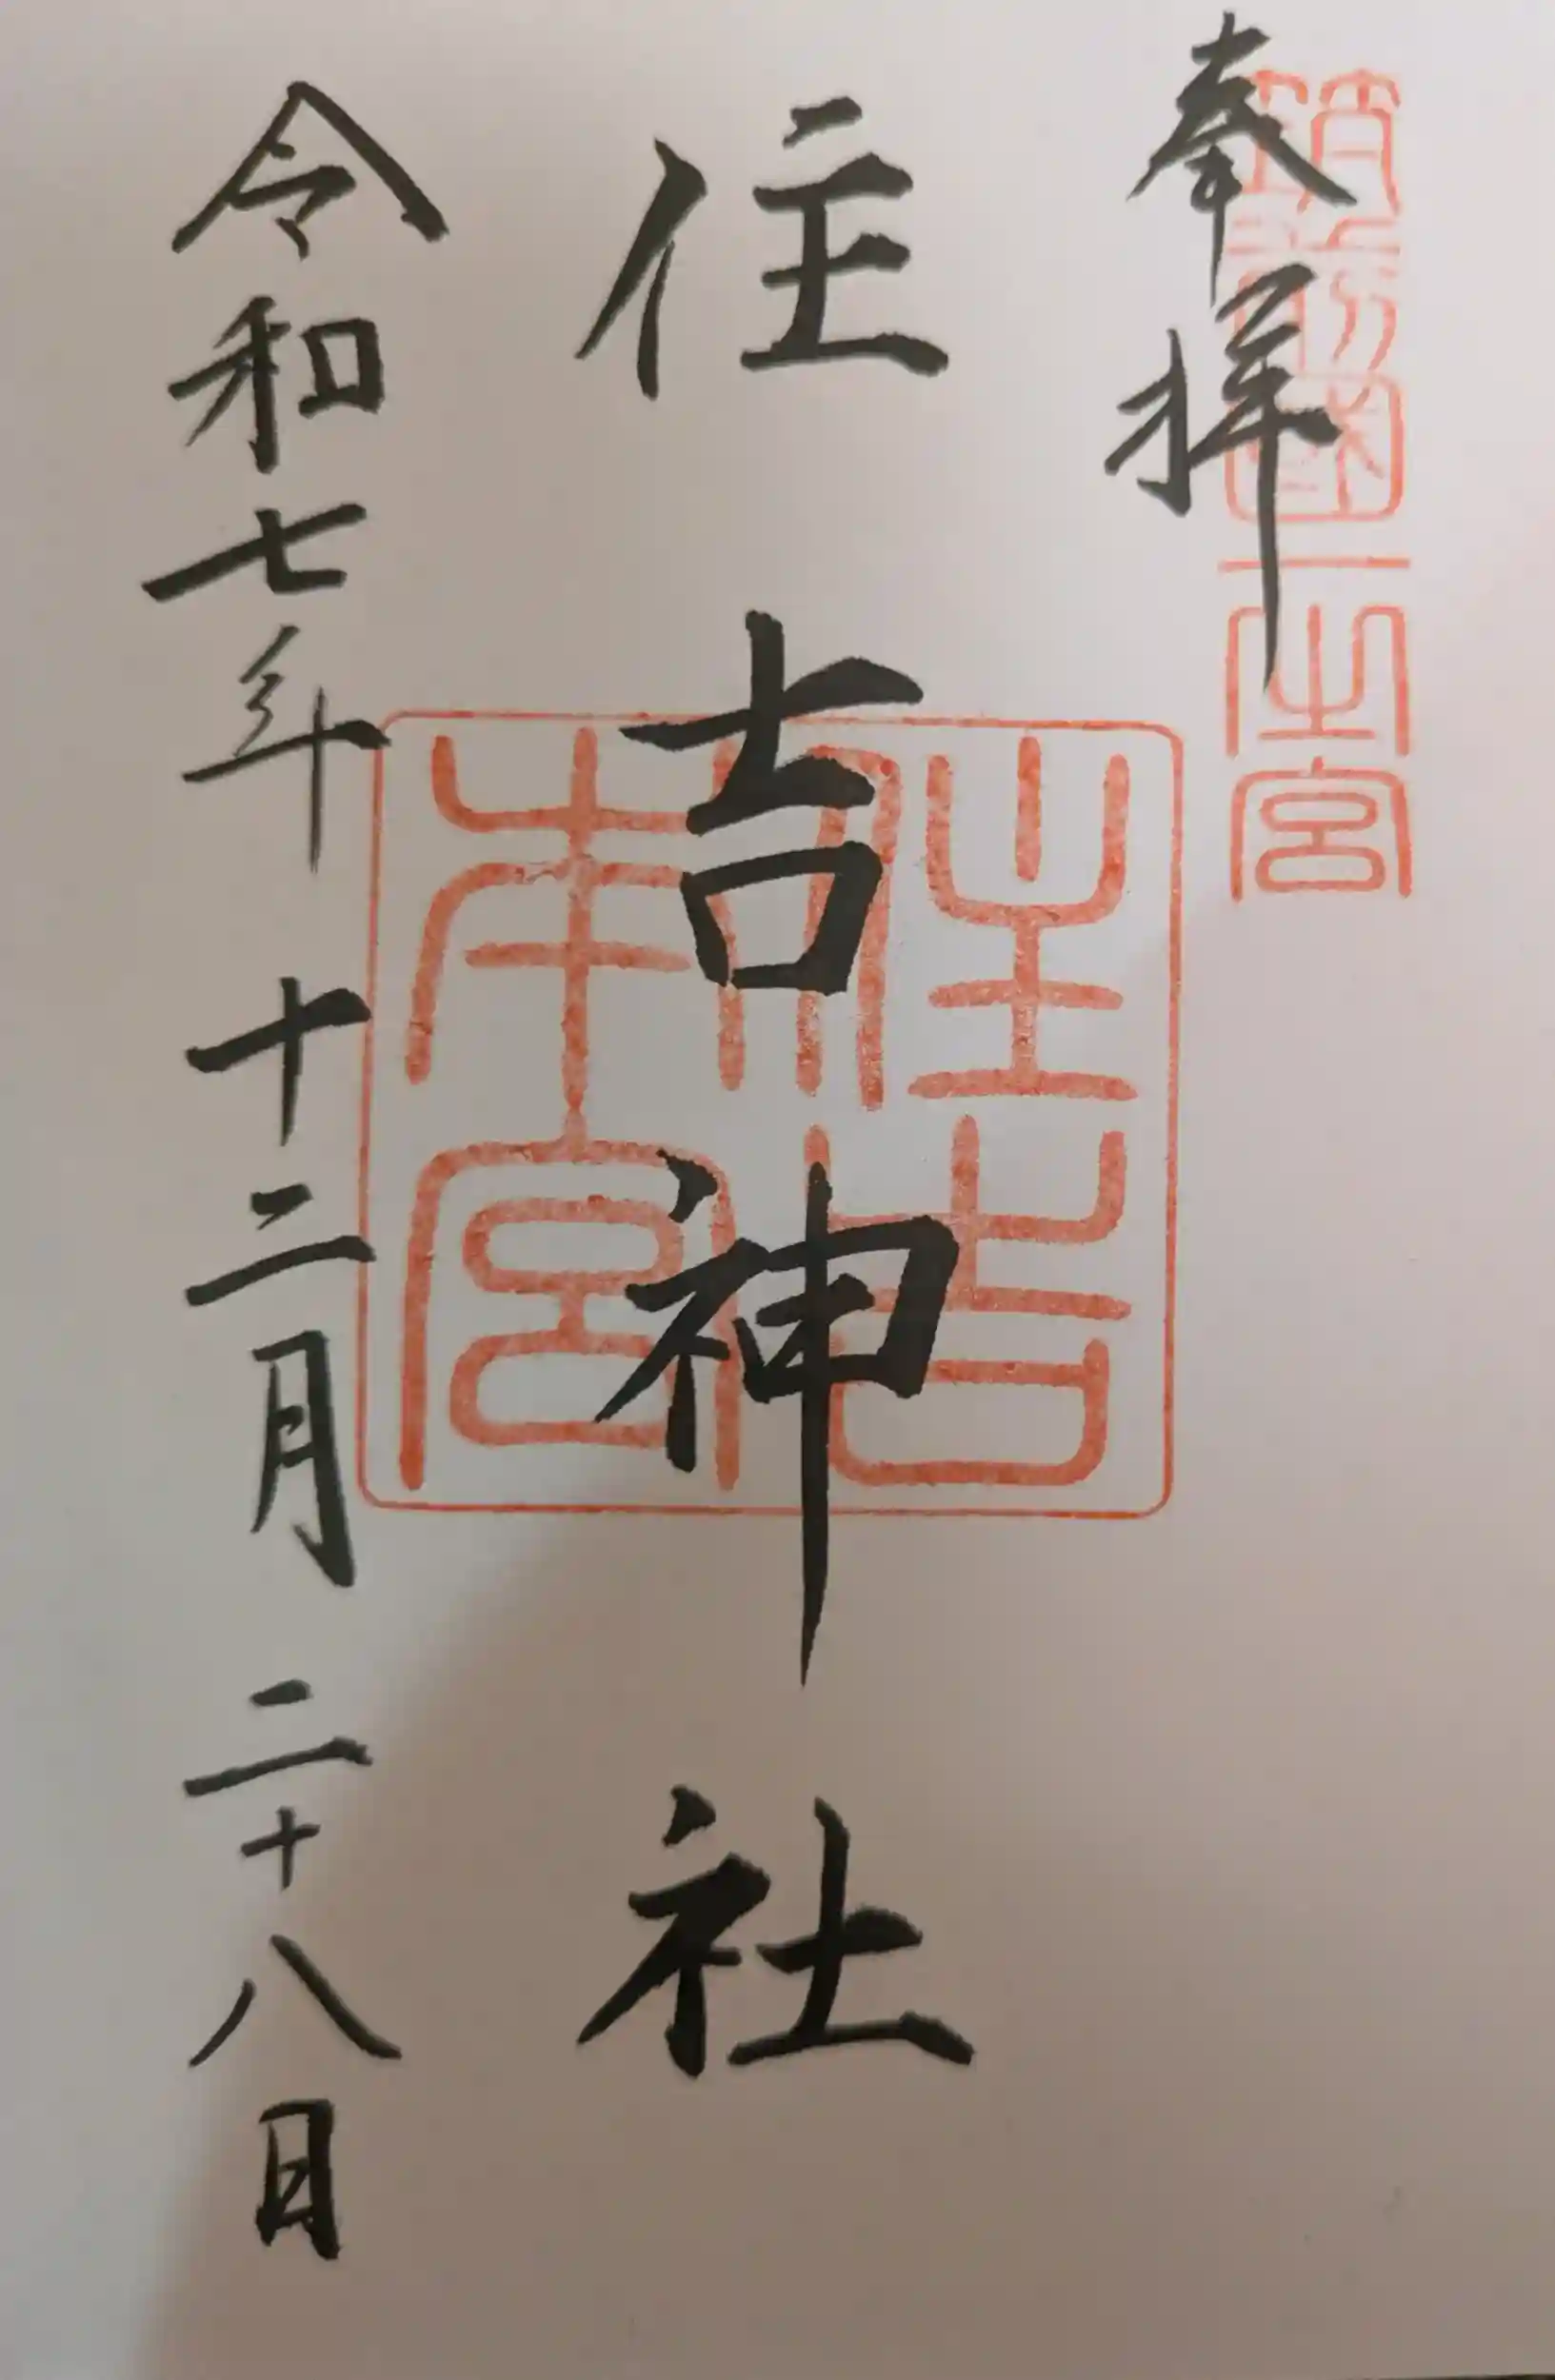 筑前國一之宮
奉拝
住吉神社
住吉
本宮
令和七年 十二月 二十八日